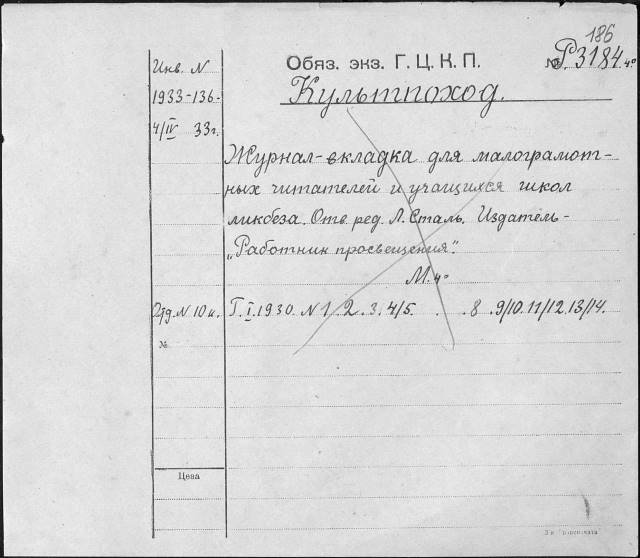 186
Обяз. экз. Г. Ц. К. П. № Р3184. 4°
Культпоход.
Инв. N
1933-136.
4/IV 33г.
Журнал-вкладка для малограмот-
ных читателей и учащихся школ
ликбеза. Отв. ред. Л. Сталь. Издатель-
„Работник просвещения".
М. 4°
Отд. N 10 к. Г. I. 1930. N 1. 2. 3. 4/5. . . 8. 9/10. 11/12. 13/14.
№
Цена